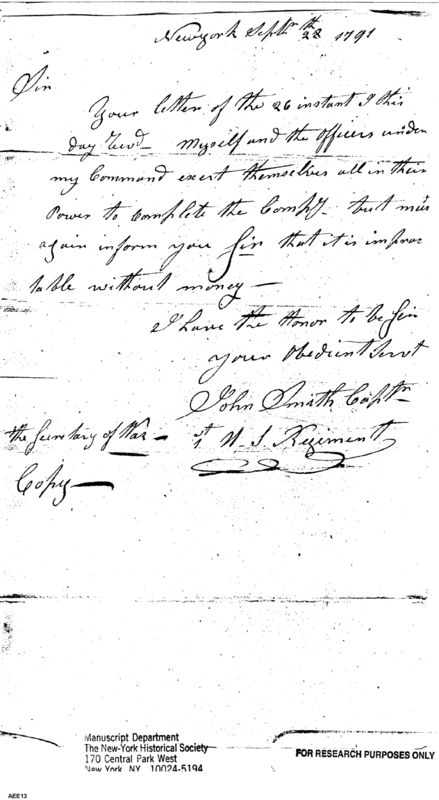 Newyork Septr. 28th 1791
Sir
Your letter of the 26 instant I this
day Recvd - Myself and the Officers under
my Command exert themselves all in their
Power to Complete the Compy - but must
again inform you Sir that it is imprac
table without money —
I have the Honor to be Sir
your Obedient Servt
John Smith Captn
the Secretary of War - 1st U. S. Regiment
Copy —
Manuscript Department
The New-York Historical Society
170 Central Park West
New York, NY 10024-5194
FOR RESEARCH PURPOSES ONLY
AEE13